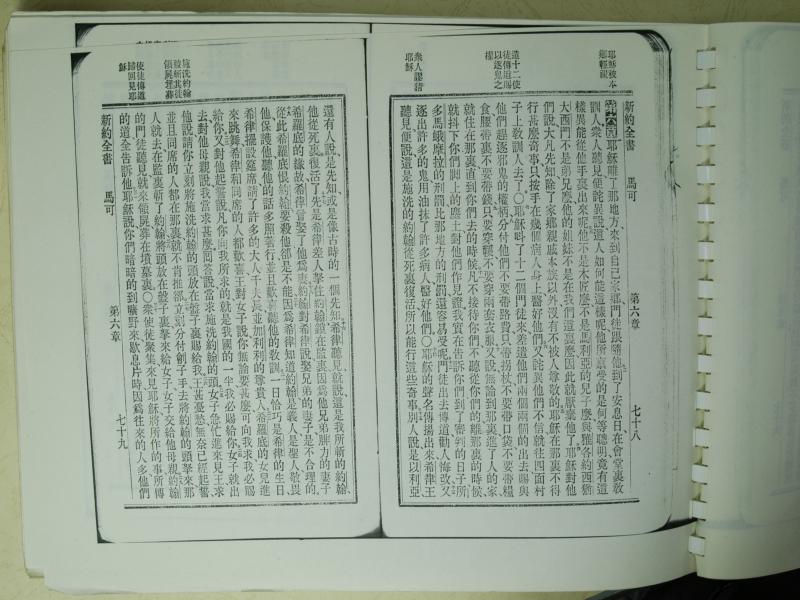 新約全書　馬可　第六章　七十八
耶穌被本鄉輕視
遣十二使徒傳道賜以逐鬼之權
衆人議論耶穌
第六章耶穌離了那地方來到自己家鄉門徒跟隨他到了安息日在會堂裏敎
訓人衆人聽見便詫異說這人如何能這樣呢他所
是何等聰明竟有這
樣異能從他手裏出來呢他不是木匠麽不是馬利亞的兒子麽與雅各約西猶
大西門不是弟兄麽他的姐妹不是在我們這裏麽因此就厭棄他了耶穌對他
們說大凡先知除了家鄉親戚本族以外沒有不被人尊敬的耶穌在那裏不得
行甚麽奇事只按手在幾個病人身上醫好他們又詫異他們不信就往四面村
子上敎訓人去了○耶穌叫了十二個門徒來差遣他們兩個兩個的出去賜與
他們趕逐邪鬼的權柄分付他們不要帶路費只帶拐杖不要帶口袋不要帶糧
食腰帶裏不要帶錢只要穿鞋不要穿兩套衣服又說無論到那裏進了人的家
就住在那裏直到你們去的時候凡不接待你們不聽從你們的離那裏的時候
就抖下你們脚上的塵土對他們作見證我實在告訴你們到了審判的日子所
多馬蛾摩拉的刑罰比那地方的刑罰還容易受呢門徒出去傳道勸人悔改又
逐出許多的鬼用油抹了許多病人醫好他們○耶穌的聲名傳揚出來希律王
聽見便說這是施洗的約翰從死裏復活所以能行這些奇事別人說是以利亞
施洗約翰被斬其徒領屍葬
使徒傳道歸回見耶穌
還有人說是先知或是像古時的一個先知希律聽見就說這是我所斬的約翰
他從死裏復活了先是希律差人拏住約翰鎖在監裏因爲他兄弟腓力的妻子
希羅底的緣故希律曾娶了他爲妻約翰對希律說娶兄弟的妻子是不合理的
從此希羅底恨約翰要殺他卻是不能因爲希律知道約翰是義人是聖人敬畏
他保護他聽他的話多照著行並且歡喜聽他的敎訓一日恰巧是希律的生日
希律擺設筵席請了許多的大人千夫長並加利利的尊貴人希羅底的女兒進
來跳舞希律和同席的人都歡喜王對女子說你無論要甚麽可向我求我必賜
給你又對他起誓說凡你向我所求的就是我國的一半我必賜給你女子就出
去對他母親說我當求甚麽回答說當求施洗約翰的頭女子急忙進來見王求
他說請你立刻將施洗約翰的頭放在盤子裏賜給我王甚憂愁無奈已經起誓
並且同席的人都在那裏就不肯推辭立刻分付劊子手去將約翰的頭拏來那
人就去在監裏斬了約翰將頭放在盤子裏拏來給女子女子交給他母親約翰
的門徒聽見就來領屍葬在墳墓裏○衆使徒聚集來見耶穌將所作的事所傳
的道全告訴他耶穌說你們暗暗的到曠野來歇息片時因爲往來的人多他們
新約全書　馬可　第六章　七十九